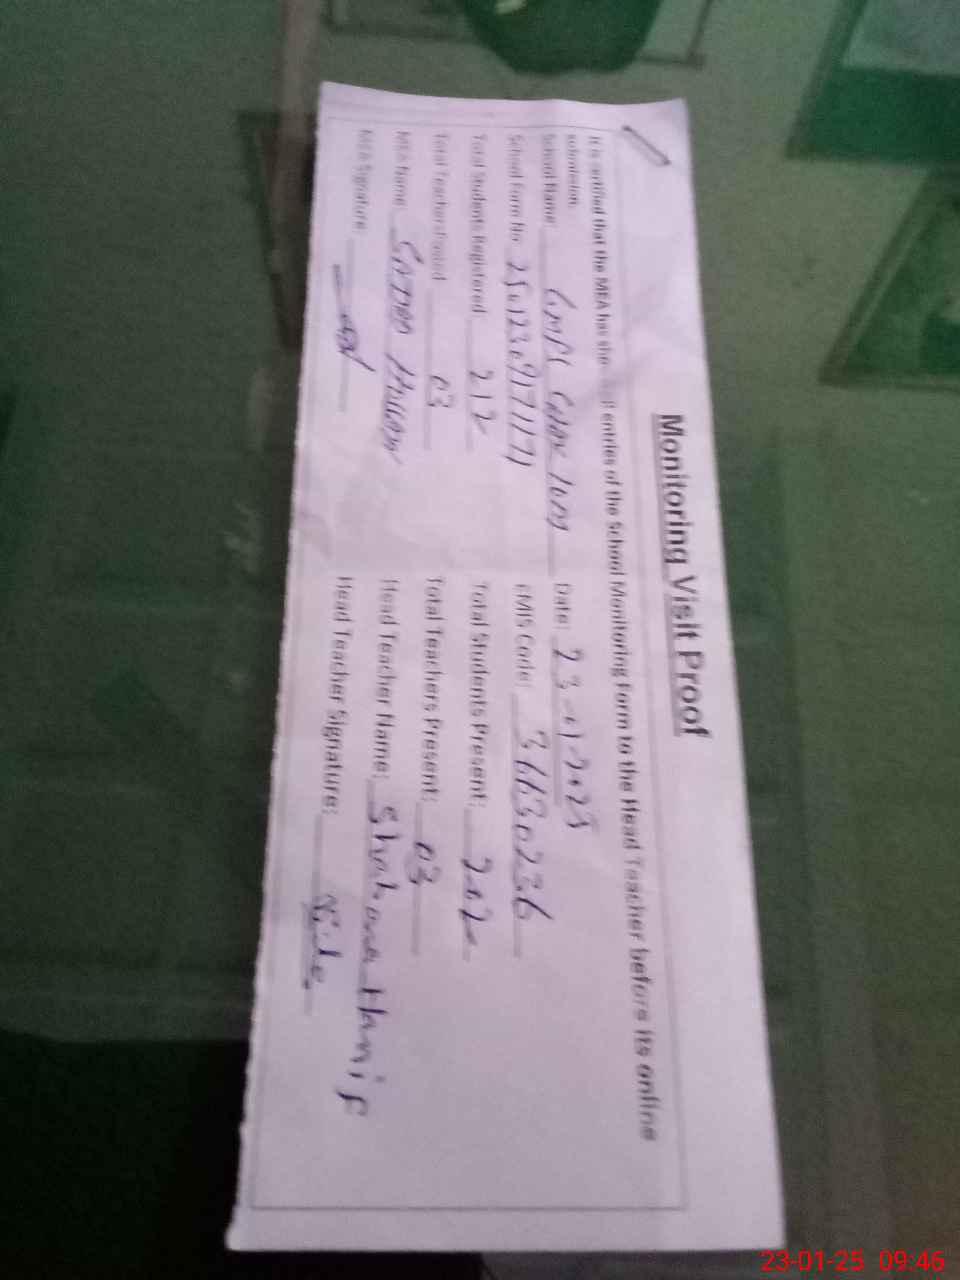 Monitoring Visit Proof
It is certified that the MEA has shared entries of the School Monitoring Form to the Head Teacher before its online
submission.
School Name: Date: 23-01-2025
School Form No 25012309171171 EMIS Code: 36630236
Total Students Registered: 212 Total Students Present: 202
Total Teachers Posted: 03 Total Teachers Present: 03
MEA Name: Head Teacher Name: Shabana Hanif
MEA Signature: Head Teacher Signature:
23-01-25 09:46